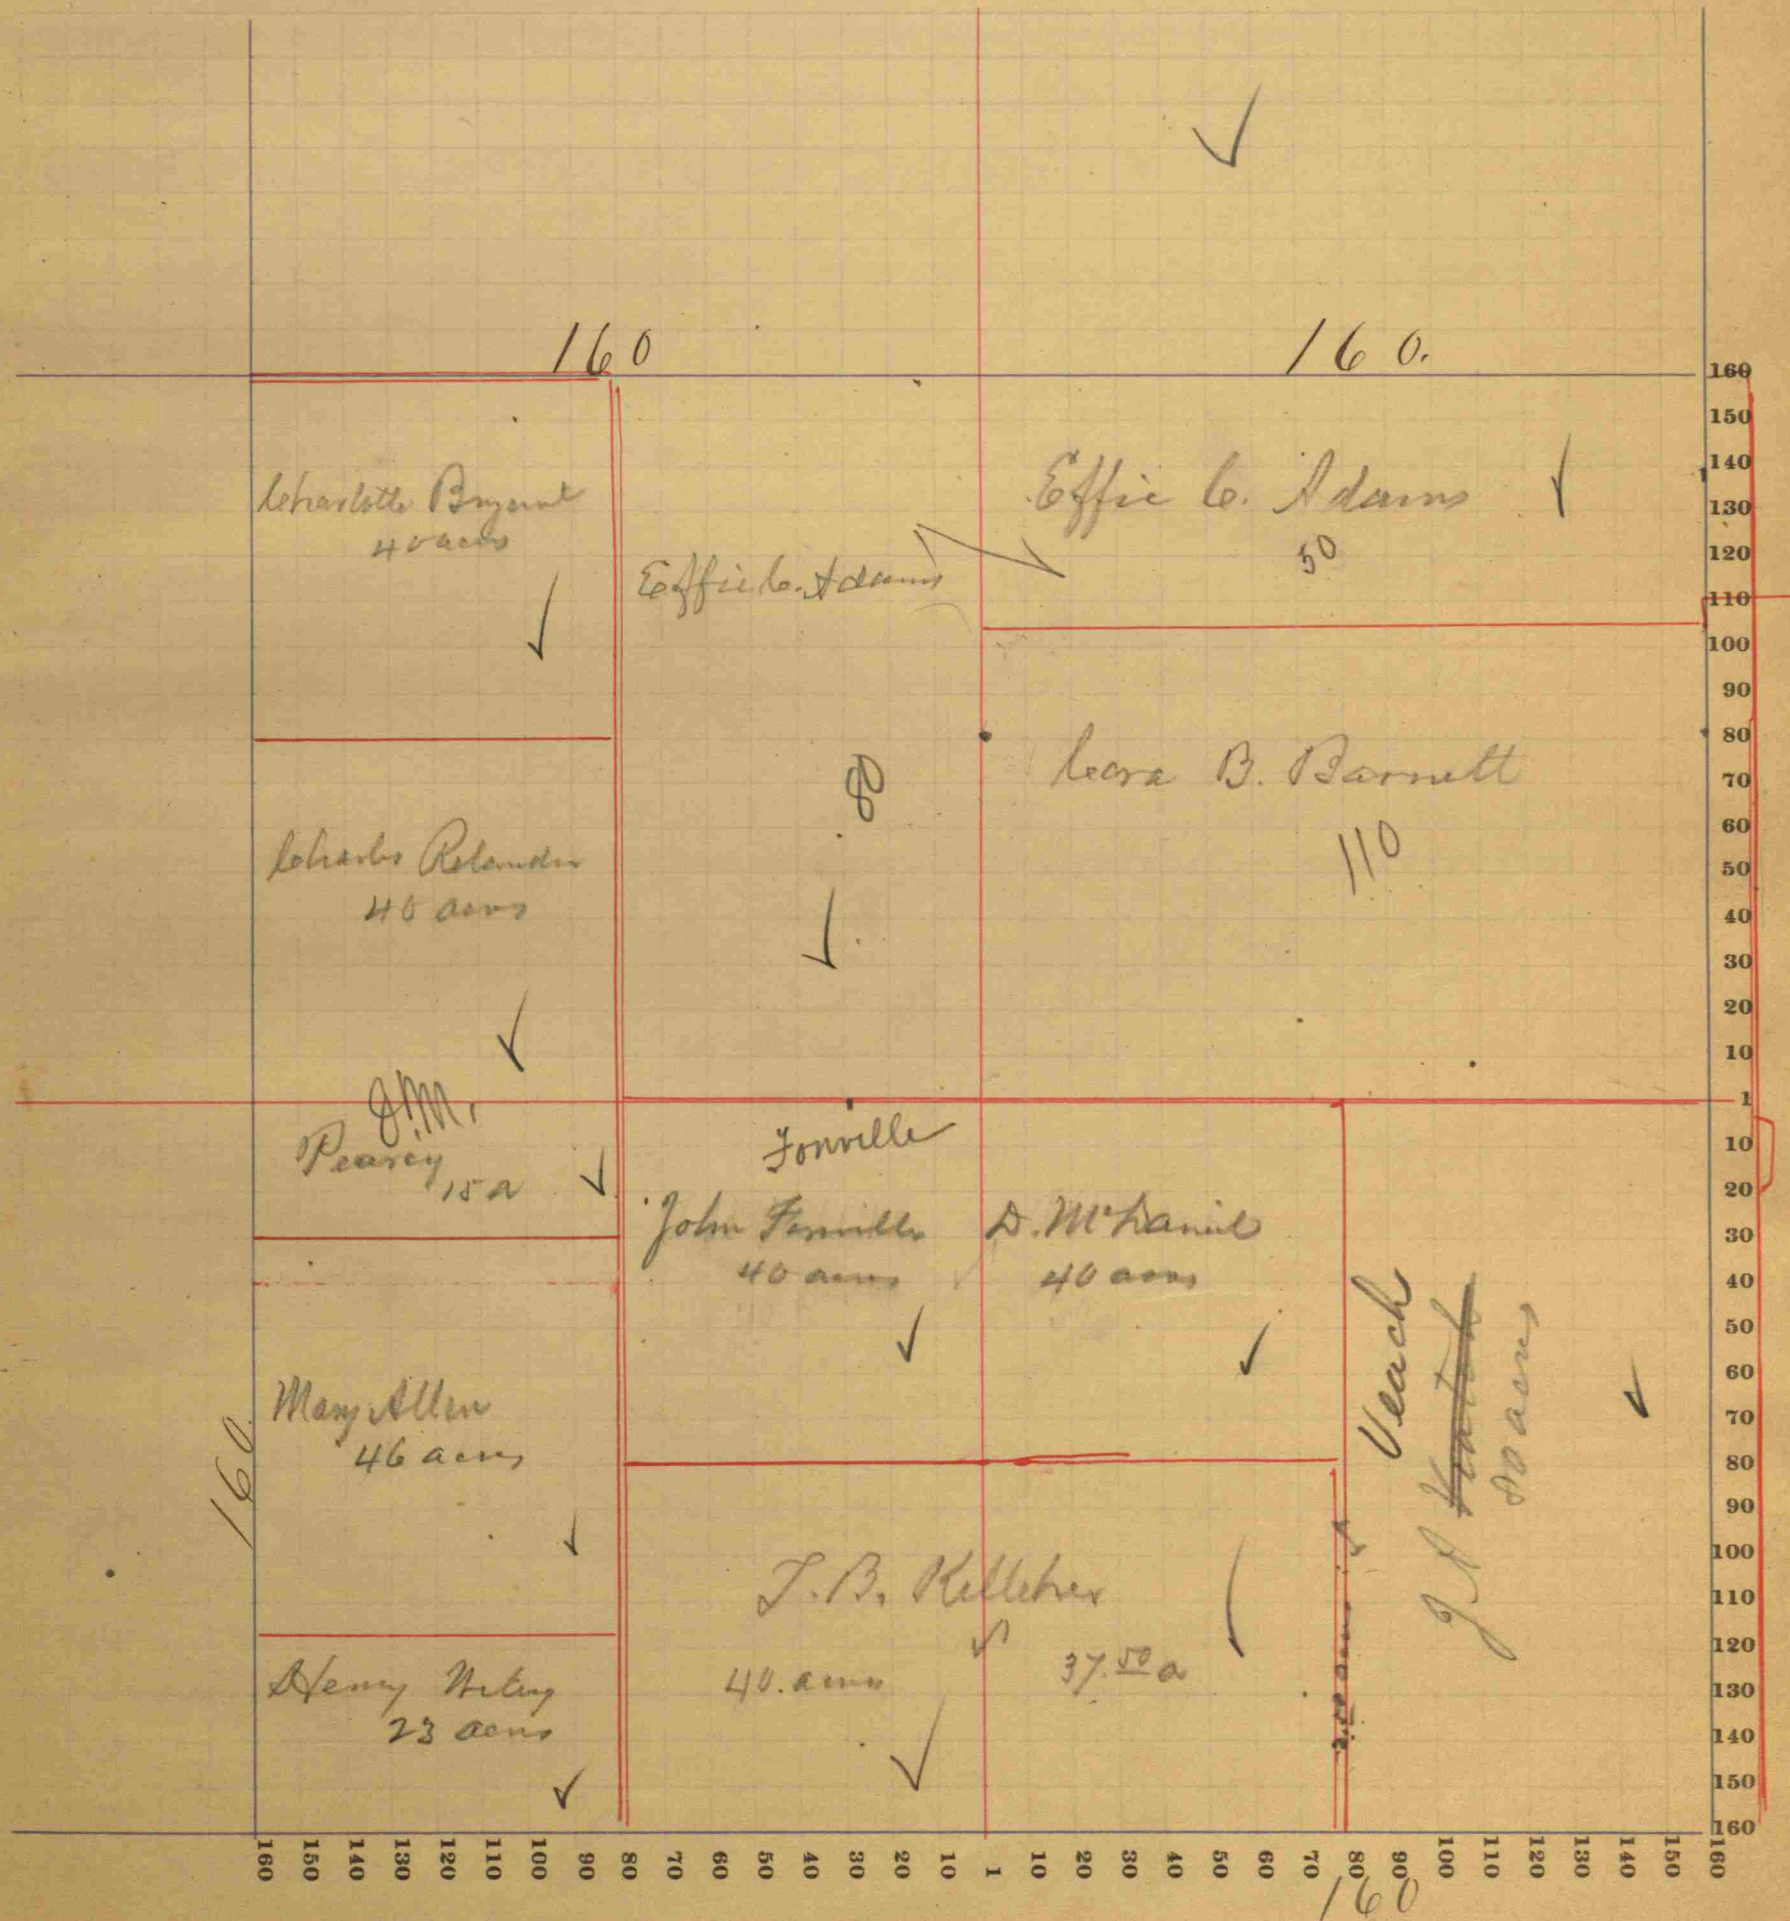 160
160.
Charlotte Bryant
40 acres
Effie C. Adams
50
Effie C. Adams
80
Cora B. Barnett
110
Charles Relander
40 acres
J.M.
Pearcy
15 a
Fonville
John Fonville
40 acres
D. McDaniel
40 acres
Veach
J A
80 acres
Mary Allen
46 acres
160
T. B. Kelleher
40. acres
37.50 a
Henry
23 acres
160
150
140
130
120
110
100
90
80
70
60
50
40
30
20
10
1
10
20
30
40
50
60
70
80
90
100
110
120
130
140
150
160
160 150 140 130 120 110 100 90 80 70 60 50 40 30 20 10 1 10 20 30 40 50 60 70 80 90 100 110 120 130 140 150 160
160